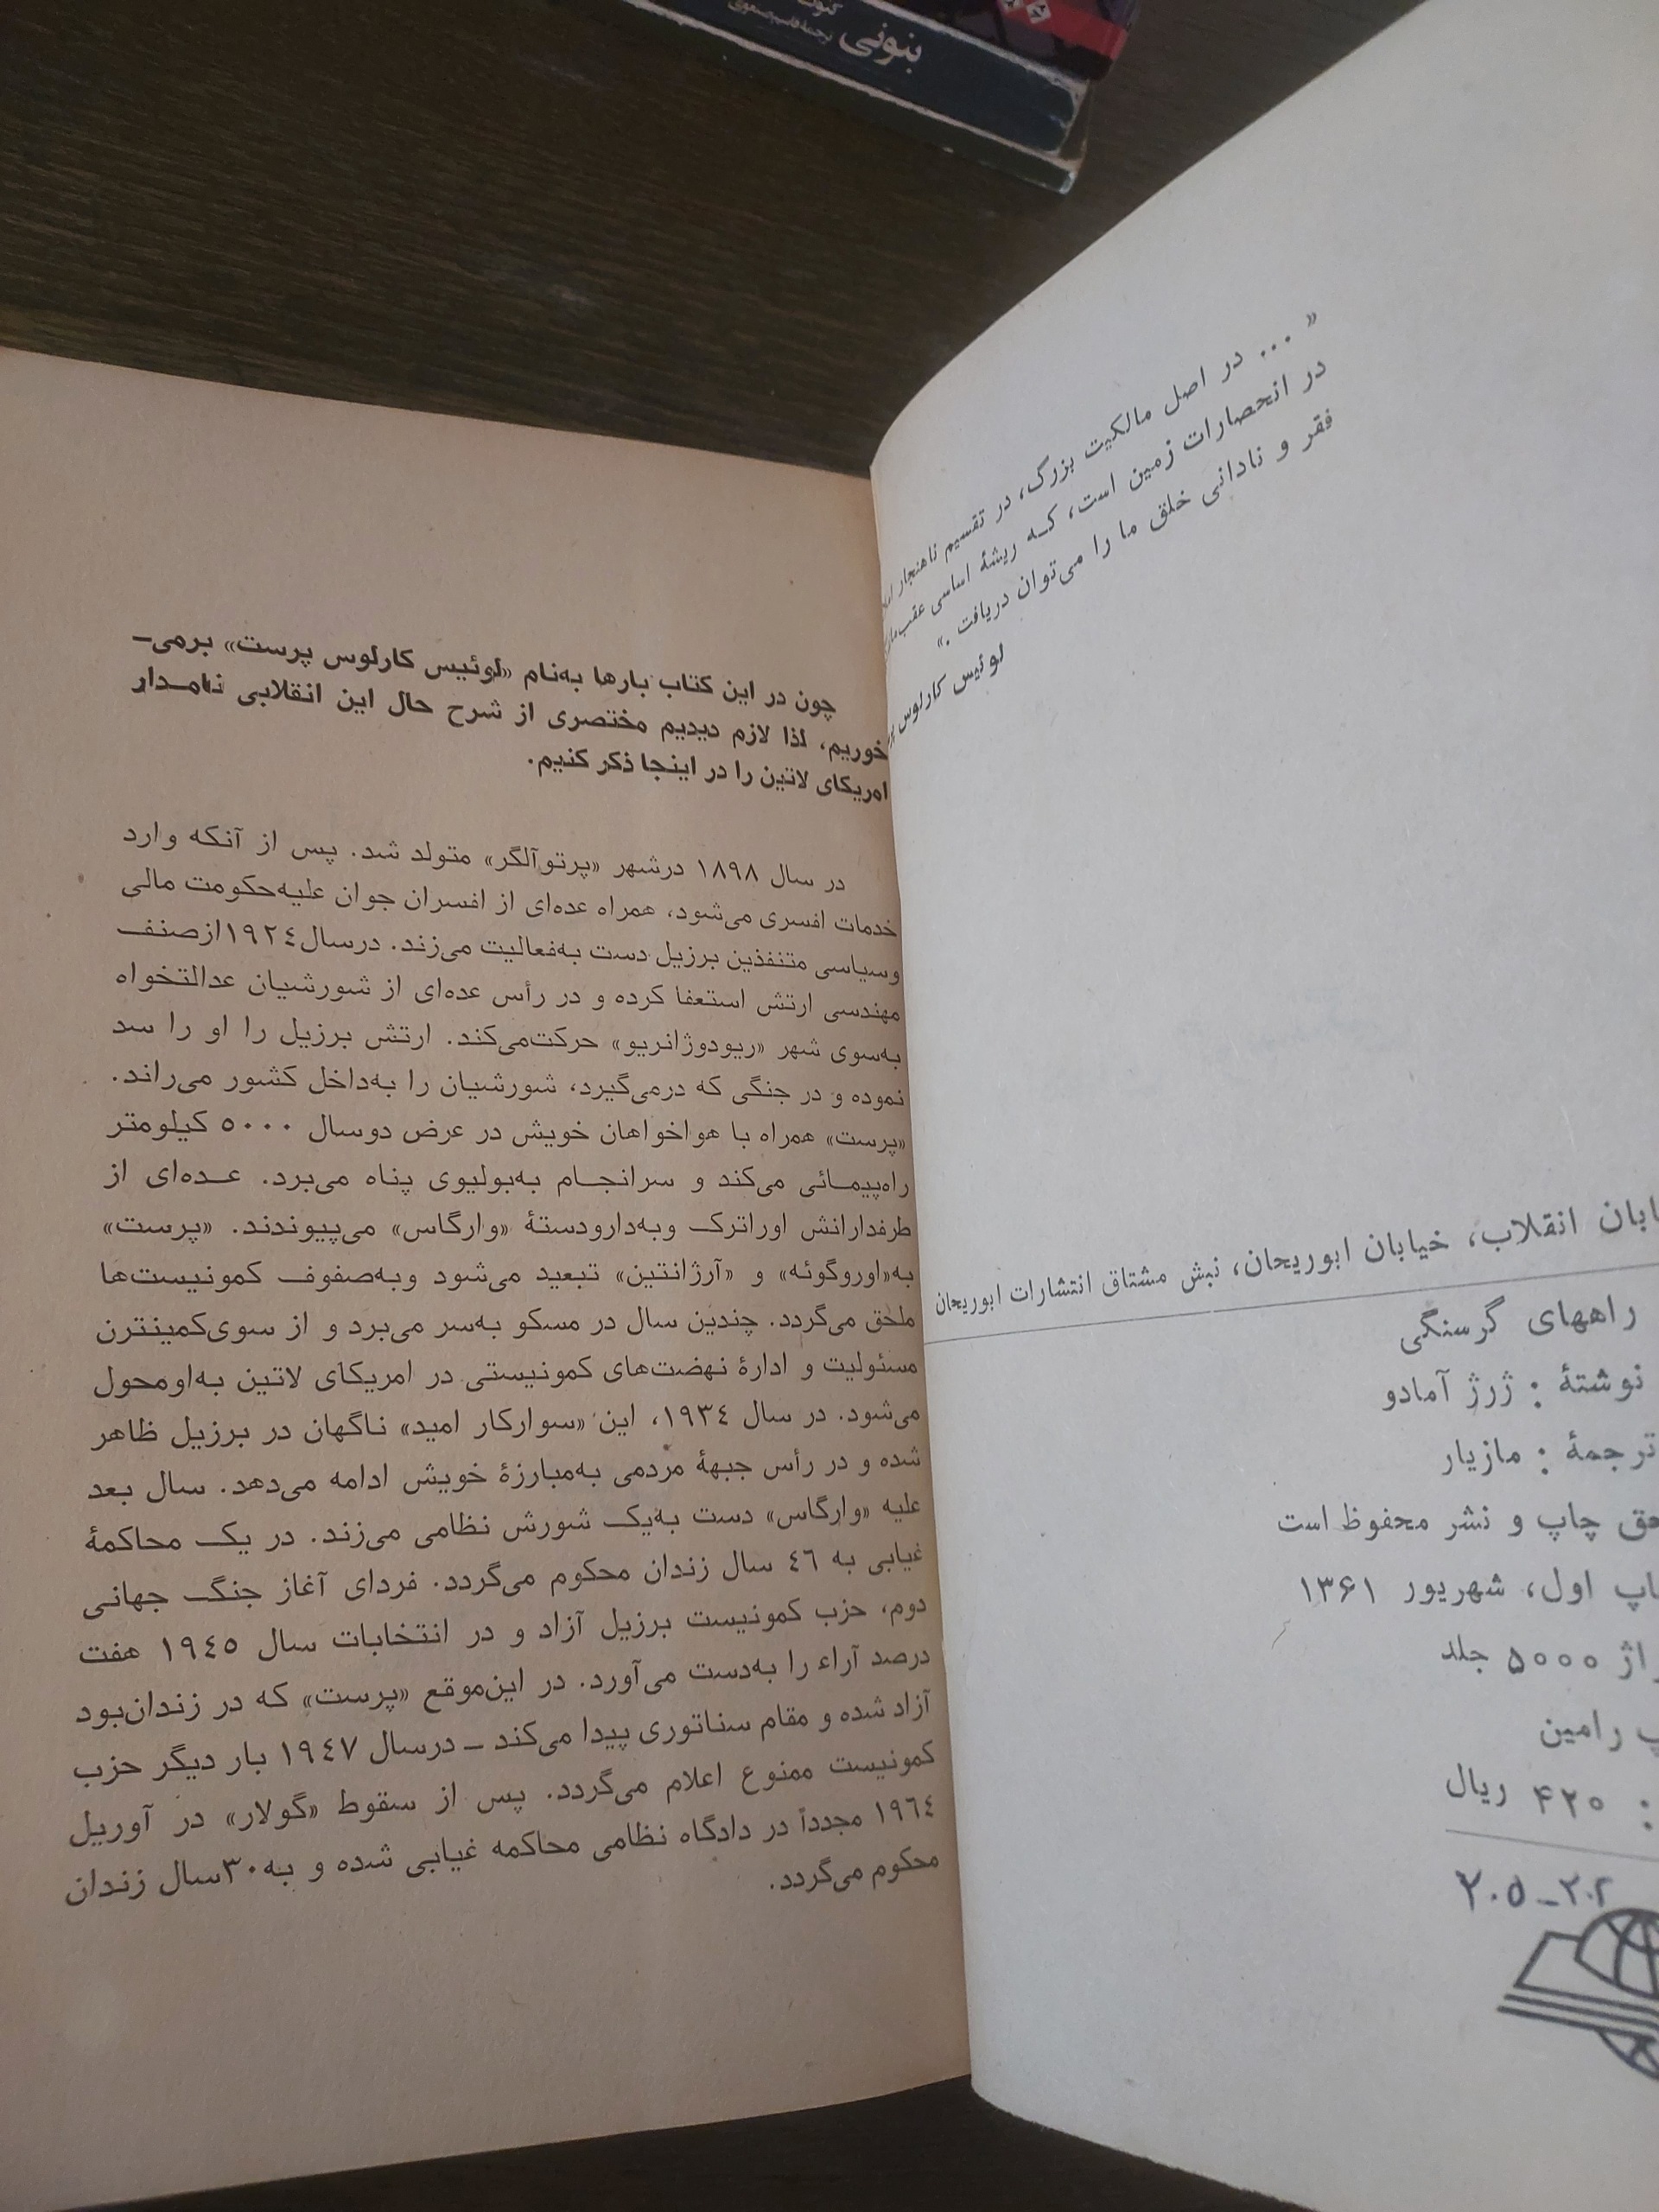 بنونی
« ... در اصل مالکیت بزرگ، در تقسیم ناهنجار
در انحصارات زمین است، کـه ریشهٔ اساسی
فقر و نادانی خلق ما را می‌توان دریافت .»
لوئیس کارلوس
انقلاب، خیابان ابوریحان، نبش مشتاق انتشارات ابوریحان
راههای گرسنگی
نوشتهٔ : ژرژ آمادو
ترجمهٔ : مازیار
حق چاپ و نشر محفوظ است
اول، شهریور ۱۳۶۱
۵۰۰۰ جلد
رامین
: ۴۲۰ ریال
۲۰۵-۲۰۲
چون در این کتاب بارها به‌نام «لوئیس کارلوس پرست» برمی-
خوریم، لذا لازم دیدیم مختصری از شرح حال این انقلابی نامـدار
امریکای لاتین را در اینجا ذکر کنیم.
در سال ۱۸۹۸ درشهر «پرتوآلگر» متولد شد. پس از آنکه وارد
خدمات افسری می‌شود، همراه عده‌ای از افسران جوان علیه‌حکومت مالی
وسیاسی متنفذین برزیل دست به‌فعالیت می‌زند. درسال ۱۹۲٤ ازصنف
مهندسی ارتش استعفا کرده و در رأس عده‌ای از شورشیان عدالتخواه
به‌سوی شهر «ریودوژانریو» حرکت‌می‌کند. ارتش برزیل را او را سد
نموده و در جنگی که درمی‌گیرد، شورشیان را به‌داخل کشور می‌راند.
«پرست» همراه با هواخواهان خویش در عرض دوسال ۵۰۰۰ کیلومتر
راه‌پیمـائی می‌کند و سرانجـام به‌بولیوی پناه می‌برد. عـده‌ای از
طرفدارانش اوراترک وبه‌دارودستهٔ «وارگاس» می‌پیوندند. «پرست»
به«اوروگوئه» و «آرژانتین» تبعید می‌شود وبه‌صفوف کمونیست‌ها
ملحق می‌گردد. چندین سال در مسکو به‌سر می‌برد و از سوی‌کمینترن
مسئولیت و ادارهٔ نهضت‌های کمونیستی در امریکای لاتین به‌اومحول
می‌شود. در سال ۱۹۳٤، این «سوارکار امید» ناگهان در برزیل ظاهر
شده و در رأس جبههٔ مردمی به‌مبارزهٔ خویش ادامه می‌دهد. سال بعد
علیه «وارگاس» دست به‌یک شورش نظامی می‌زند. در یک محاکمهٔ
غیابی به ٤٦ سال زندان محکوم می‌گردد. فردای آغاز جنگ جهانی
دوم، حزب کمونیست برزیل آزاد و در انتخابات سال ۱۹٤۵ هفت
درصد آراء را به‌دست می‌آورد. در این‌موقع «پرست» که در زندان‌بود
آزاد شده و مقام سناتوری پیدا می‌کند - درسال ۱۹٤۷ بار دیگر حزب
کمونیست ممنوع اعلام می‌گردد. پس از سقوط «گولار» در آوریل
۱۹٦٤ مجدداً در دادگاه نظامی محاکمه غیابی شده و به ۳۰سال زندان
محکوم می‌گردد.